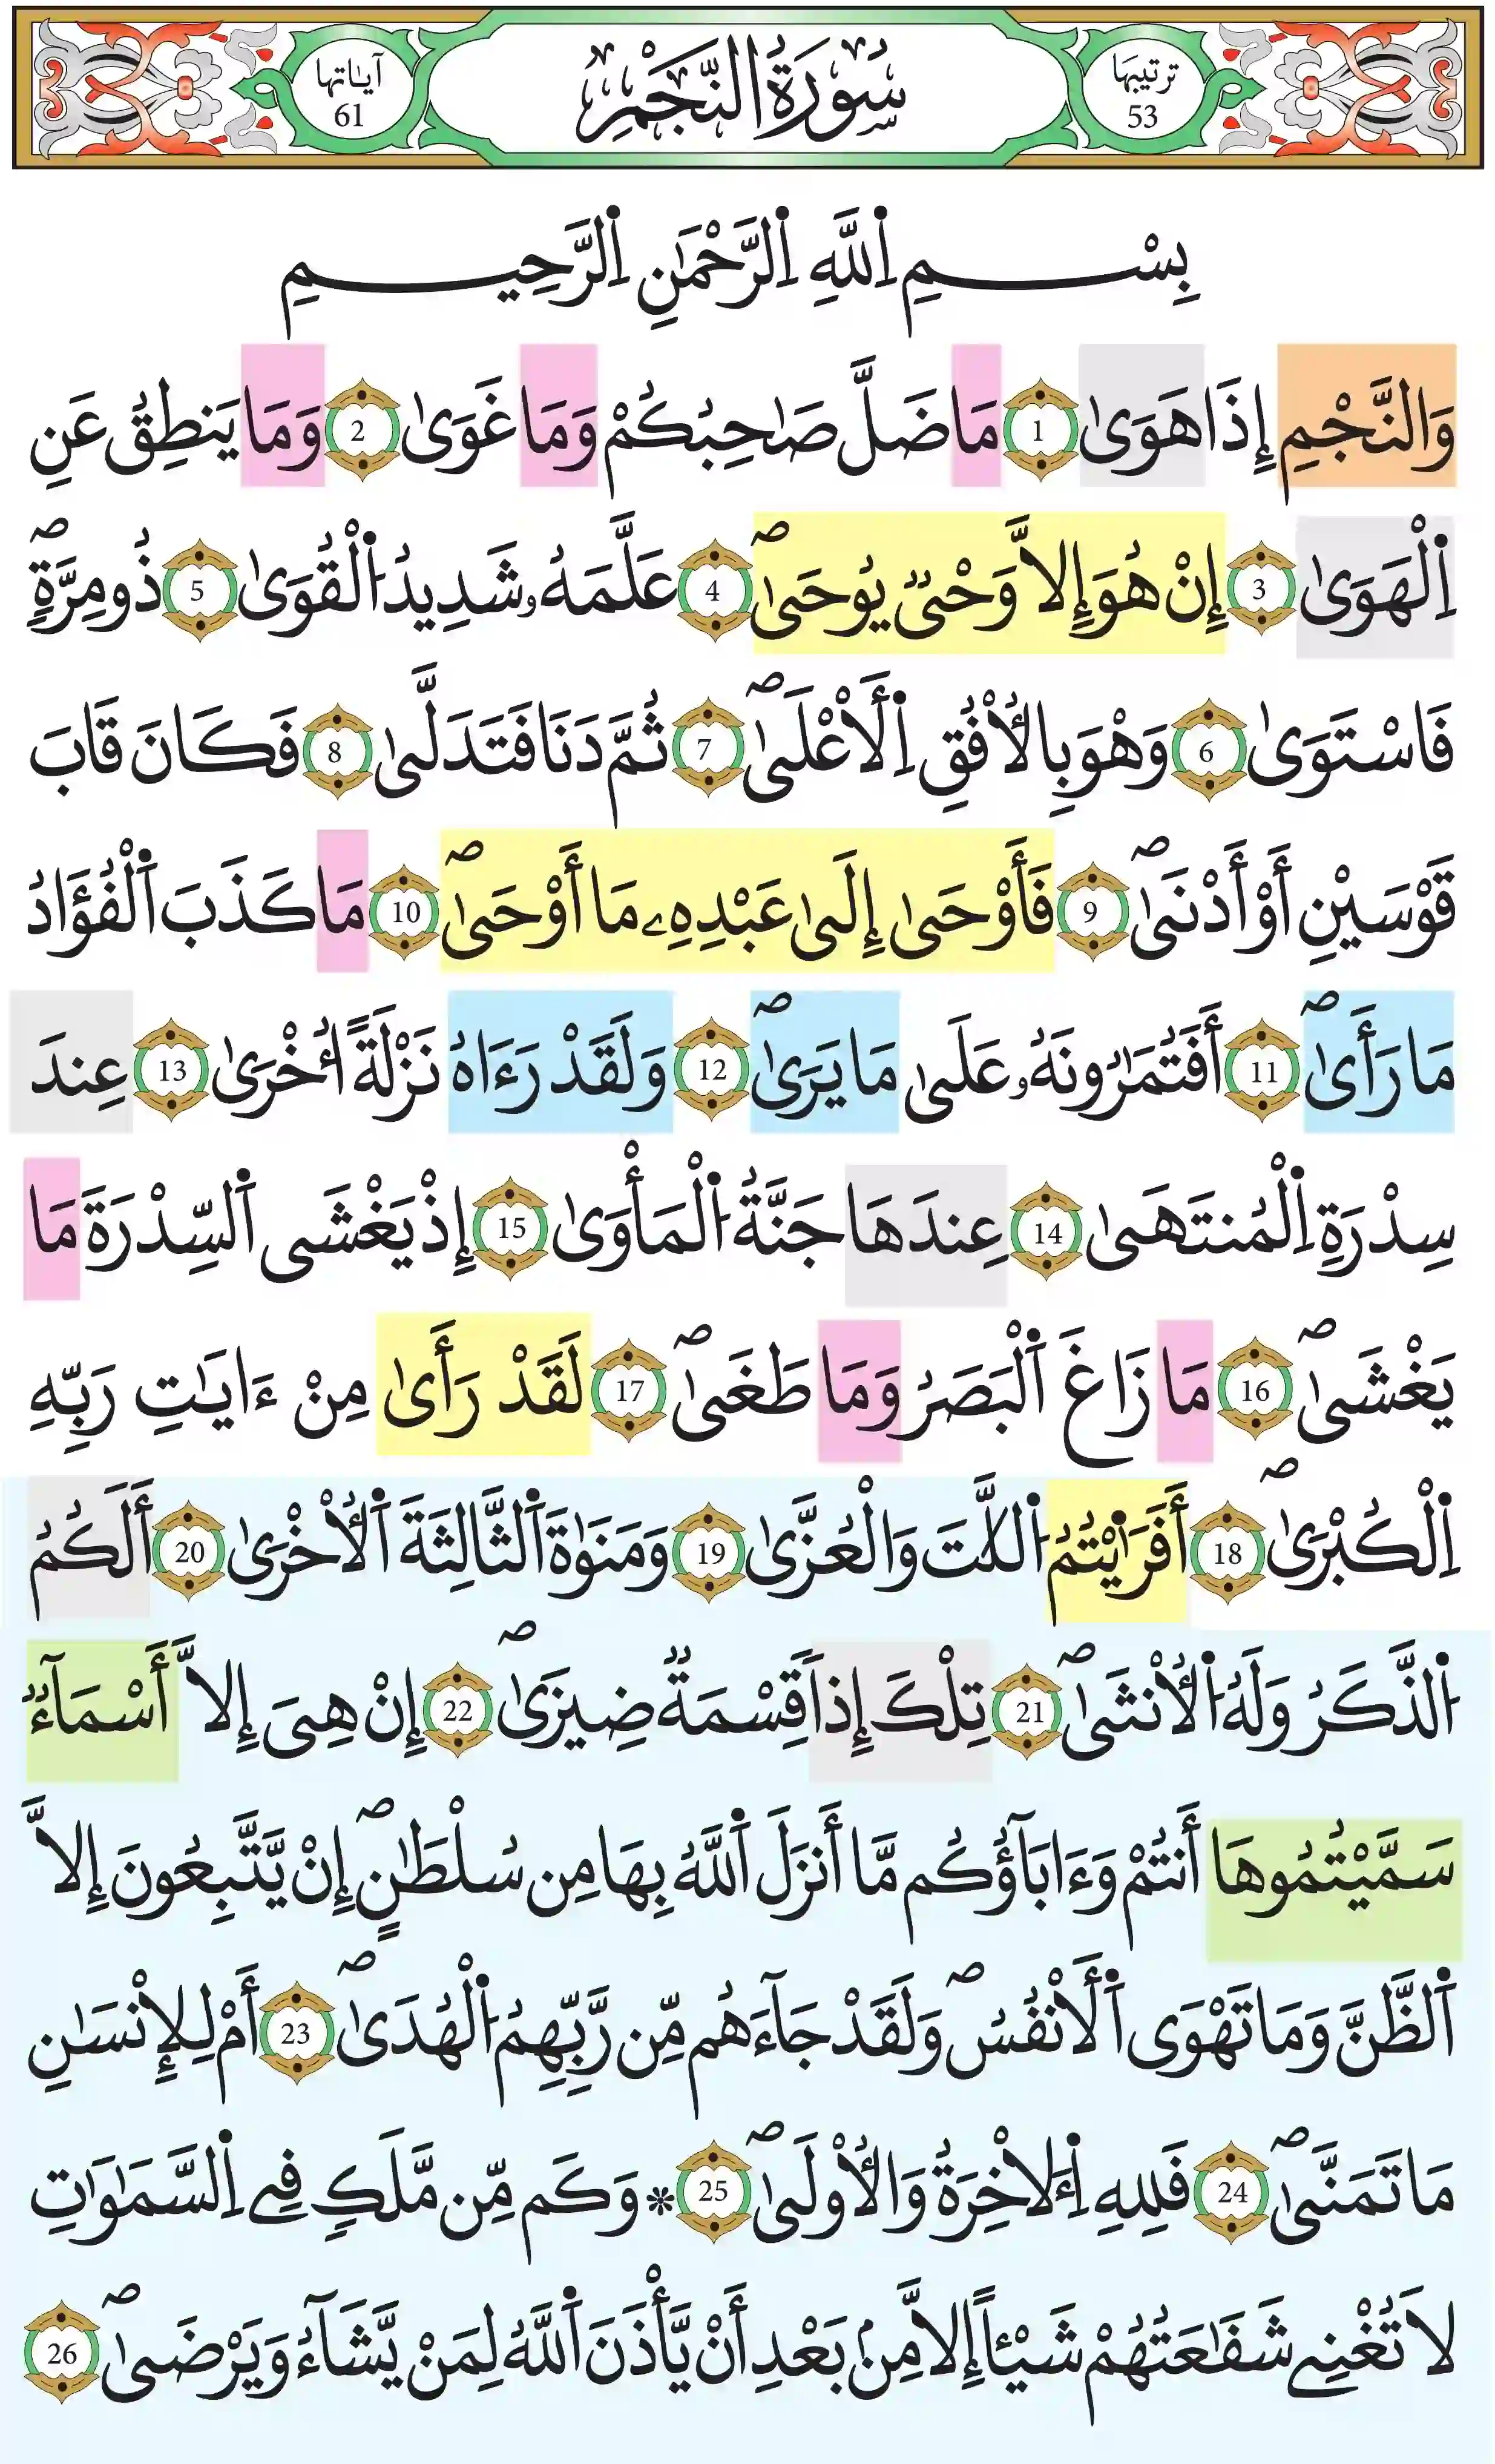 ترتيبها
53
سُورَةُ النَّجْمِ
آياتها
61
بِسْمِ اِ۬للَّهِ اِ۬لرَّحْمَٰنِ اِ۬لرَّحِيمِ
وَالنَّجْمِ إِذَا هَوَىٰ 1 مَا ضَلَّ صَاحِبُكُمْ وَمَا غَوَىٰ 2 وَمَا يَنطِقُ عَنِ
اِ۬لْهَوَىٰ 3 إِنْ هُوَ إِلاَّ وَحْىٌ يُوحَىٰ ۖ 4 عَلَّمَهُۥ شَدِيدُ اُ۬لْقُوَىٰ 5 ذُو مِرَّةٍ ۖ
فَاسْتَوَىٰ 6 وَهْوَ بِالْأُفْقِ اِ۬لْأَعْلَىٰ ۖ 7 ثُمَّ دَنَا فَتَدَلَّىٰ 8 فَكَانَ قَابَ
قَوْسَيْنِ أَوْ أَدْنَىٰ ۖ 9 فَأَوْحَىٰ إِلَىٰ عَبْدِهِۦ مَا أَوْحَىٰ ۖ 10 مَا كَذَبَ اَ۬لْفُؤَادُ
مَا رَأَىٰ ۖ 11 أَفَتُمَٰرُونَهُۥ عَلَىٰ مَا يَرَىٰ ۖ 12 وَلَقَدْ رَءَاهُ نَزْلَةً أُخْرَىٰ 13 عِندَ
سِدْرَةِ اِ۬لْمُنتَهَىٰ 14 عِندَهَا جَنَّةُ اُ۬لْمَأْوَىٰ 15 إِذْ يَغْشَى اَ۬لسِّدْرَةَ مَا
يَغْشَىٰ ۖ 16 مَا زَاغَ اَ۬لْبَصَرُ وَمَا طَغَىٰ ۖ 17 لَقَدْ رَأَىٰ مِنْ ءَايَٰتِ رَبِّهِ
اِ۬لْكُبْرَىٰ ۖ 18 أَفَرَٰيْتُمُ اُ۬للَّٰتَ وَالْعُزَّىٰ 19 وَمَنَوٰةَ اَ۬لثَّالِثَةَ اَ۬لْأُخْرَىٰ 20 أَلَكُمُ
اُ۬لذَّكَرُ وَلَهُ اُ۬لْأُنثَىٰ ۖ 21 تِلْكَ إِذاً قِسْمَةٌ ضِيزَىٰ ۖ 22 إِنْ هِىَ إِلاَّ أَسْمَآءٌ
سَمَّيْتُمُوهَا أَنتُمْ وَءَابَآؤُكُم مَّا أَنزَلَ اَ۬للَّهُ بِهَا مِن سُلْطَٰنٍ ۖ إِنْ يَّتَّبِعُونَ إِلاَّ
اَ۬لظَّنَّ وَمَا تَهْوَى اَ۬لْأَنفُسُ ۖ وَلَقَدْ جَآءَهُم مِّن رَّبِّهِمُ اُ۬لْهُدَىٰ ۖ 23 أَمْ لِلْإِنسَٰنِ
مَا تَمَنَّىٰ ۖ 24 فَلِلهِ اِ۬لْأٓخِرَةُ وَالْأُولَىٰ ۖ 25 * وَكَم مِّن مَّلَكٍ فِى اِ۬لسَّمَٰوَٰتِ
لاَ تُغْنِى شَفَٰعَتُهُمْ شَيْـٔاً إِلاَّ مِنۢ بَعْدِ أَنْ يَّأْذَنَ اَ۬للَّهُ لِمَنْ يَّشَآءُ وَيَرْضَىٰ ۖ 26